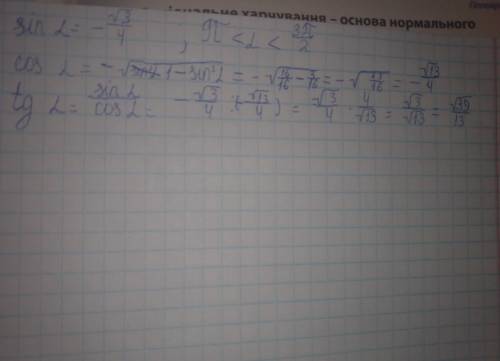 ональне харчування – основа нормального
sin α = - √3/4 , π < α < 3π/2
cos α = - √1 - sin²α = - √16/16 - 3/16 = - √13/16 = - √13/4
tg α = sin α/cos α = - √3/4 : (- √13/4) = √3/4 · 4/√13 = √3/√13 = √39/13